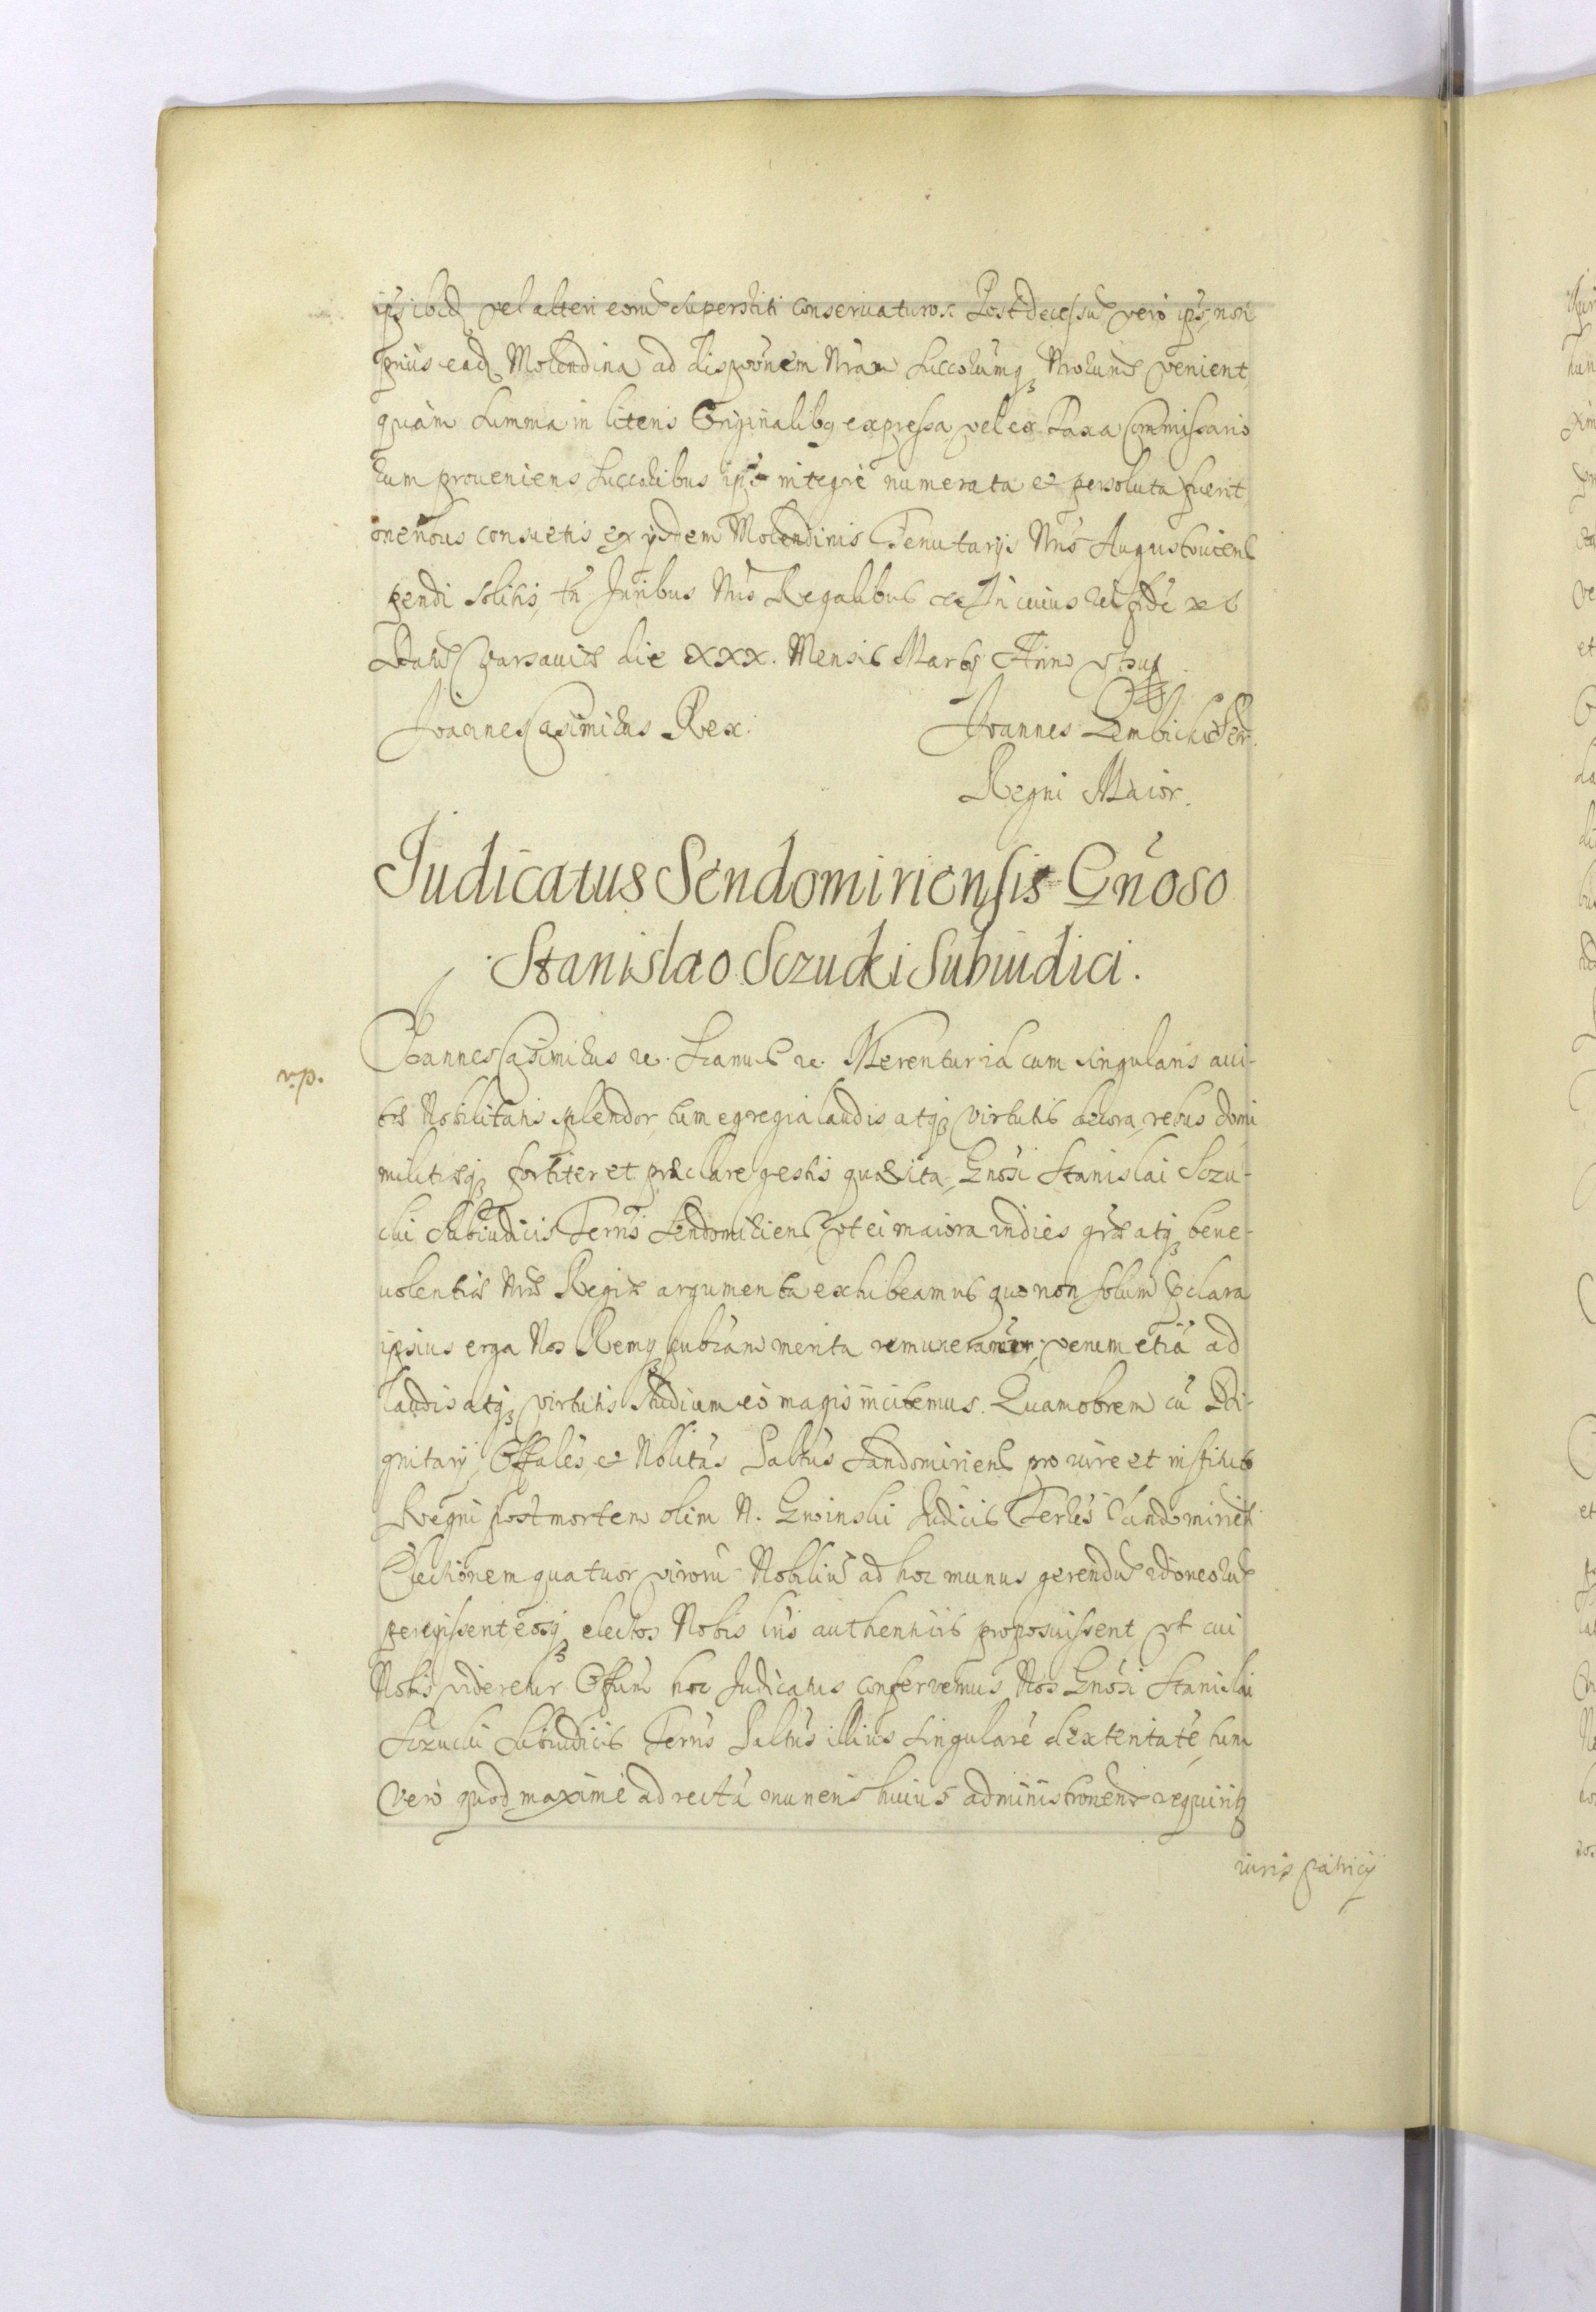 ipsis ibid vel alteri eorū superstiti conseruaturos. Post decessū vero ips non
prius ead Molendina ad dispoōnem Nram Succorumq Nrorum venient,
quàm summa in literis Originalibq expressa vel ex Taxa Commissario
rum proueniens Succoribus ips integrè numerata et persoluta fuerit
oneribus consuetis ex ijsdem Molendinis Tenutarijs Nris Augustouien
pendi solitis, tn Juribus Nris Regalibus etc In cuius rei fidē etc
Datū Varsauiæ die XXX. Mensis Martij Anno vt sup
Joannes Casimirus Rex. Joannes Gembicki Secr.
Regni Maior.
Judicatus Sendomiriensis Gn̄oso
Stanislao Sczucki Subiudici.
Joannes Casimirus etc. Significamus etc. Merentur id cum singularis aui-
tæ Nobilitatis splendor, tum egregia laudis atq virtutis decora, rebus domi
militiæq fortiter et præclare gestis quæsita, Gnōsi Stanislai Sczu-
cki Subiudicis Terrīs Sendomirien vt ei maiora indies grāæ atq bene-
uolentiæ Nræ Regiæ argumenta exhibeamus quo non solum p̄clara
ipsius erga Nos Remq pubcam merita remuneramur, verum etiā ad
laudis atq virtutis studium eò magis incitemus. Quamobrem cū Di-
gnitarij, Offales, et Nolitas Paltus Sandomirien pro iure et instituto
Regni post mortem olim N. Gnoinski Judicis Terrēs Sandomirien
Electionem quatuor virorū Nobiliū ad hoc munus gerendū idoneorū
peregissent eosq electos Nobis lris authenticis proposuissent vt cui
Nobis videretur Offum hoc Judicatus conferremus Nos Gnōsi Stanislai
Sczucki Subiudicis Terrīs Paltus illius singularē dexteritatē, tum
vero quod maximè ad rectā muneris huius administrōnem requiritq
iuris patrij
v.p.